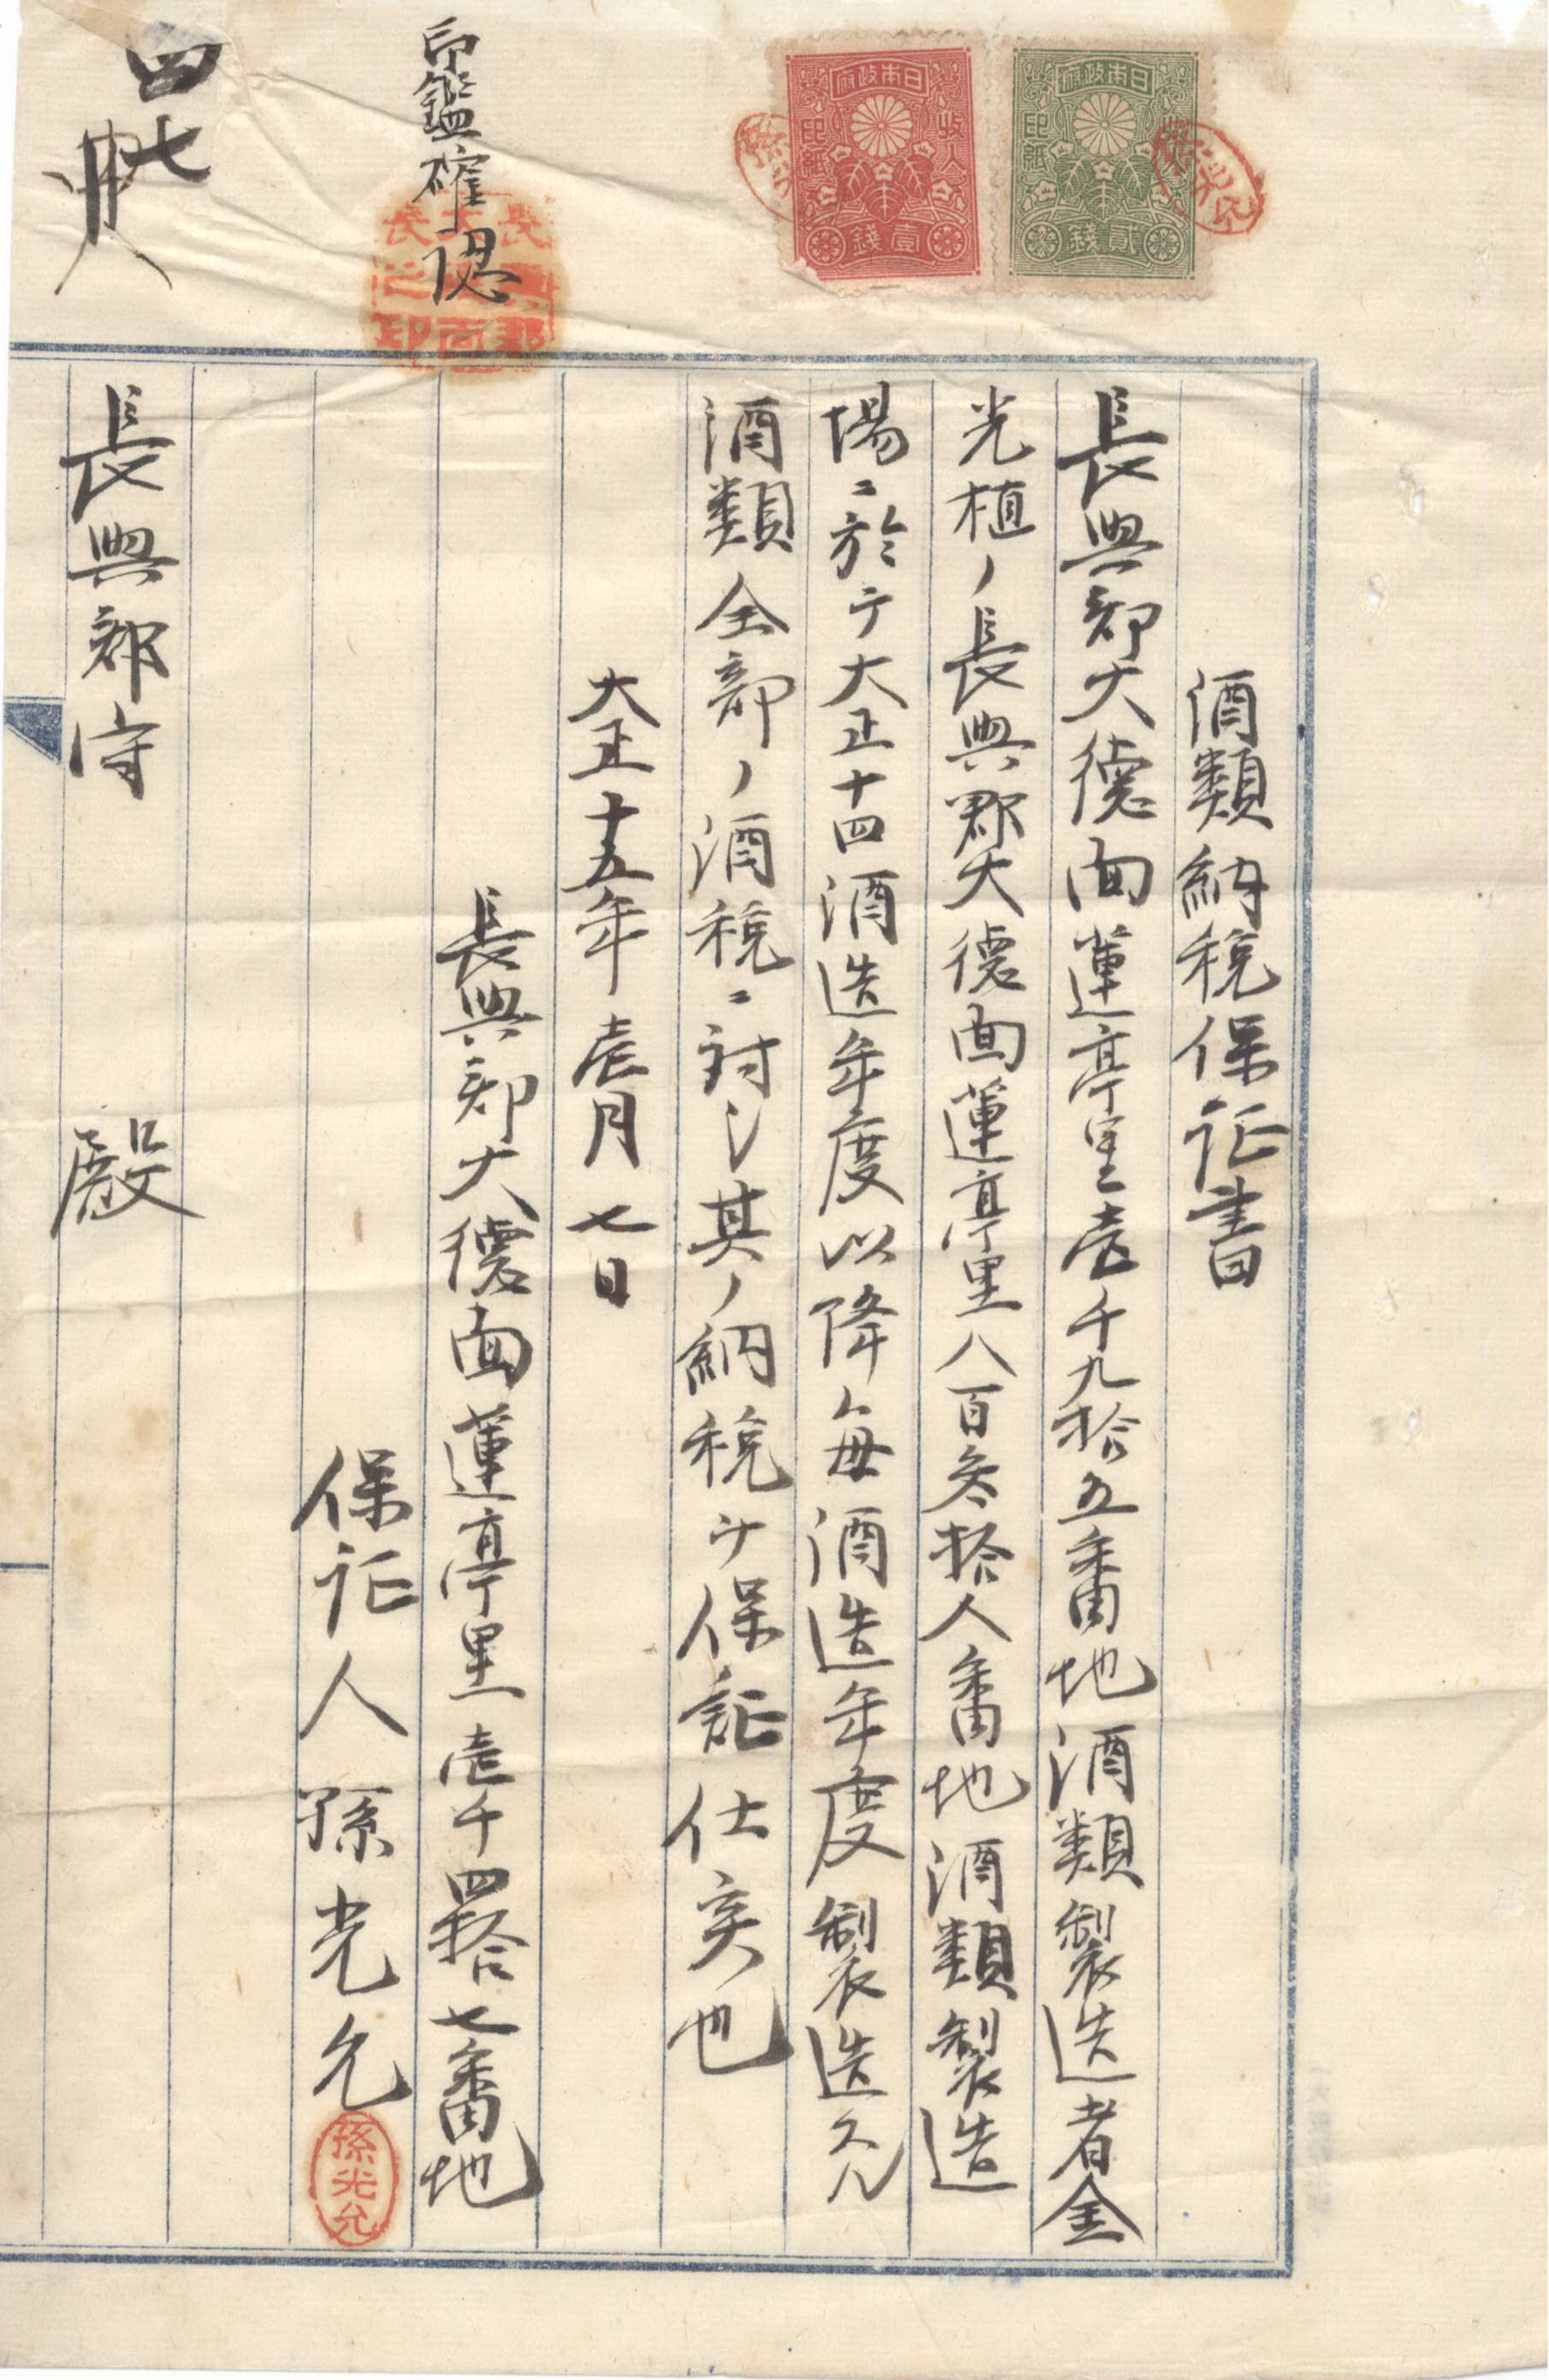 日本政府
收入
印紙
貳錢
日本政府
收入
印紙
壹錢
印鑑確認
長興郡大德面長之印
酒類納税保证書
長興郡大德面蓮亭里壱千九拾五番地酒類製造者金
光植ノ長興郡大德面蓮亭里八百參拾八番地酒類製造
場ニ於テ大正十四酒造年度以降毎酒造年度製造スル
酒類全部ノ酒税ニ對シ其ノ納税ヲ保証仕候也
大正十五年壱月七日
長興郡大德面蓮亭里壱千四拾七番地
保证人孫光允
孫光允
長興郡守 殿